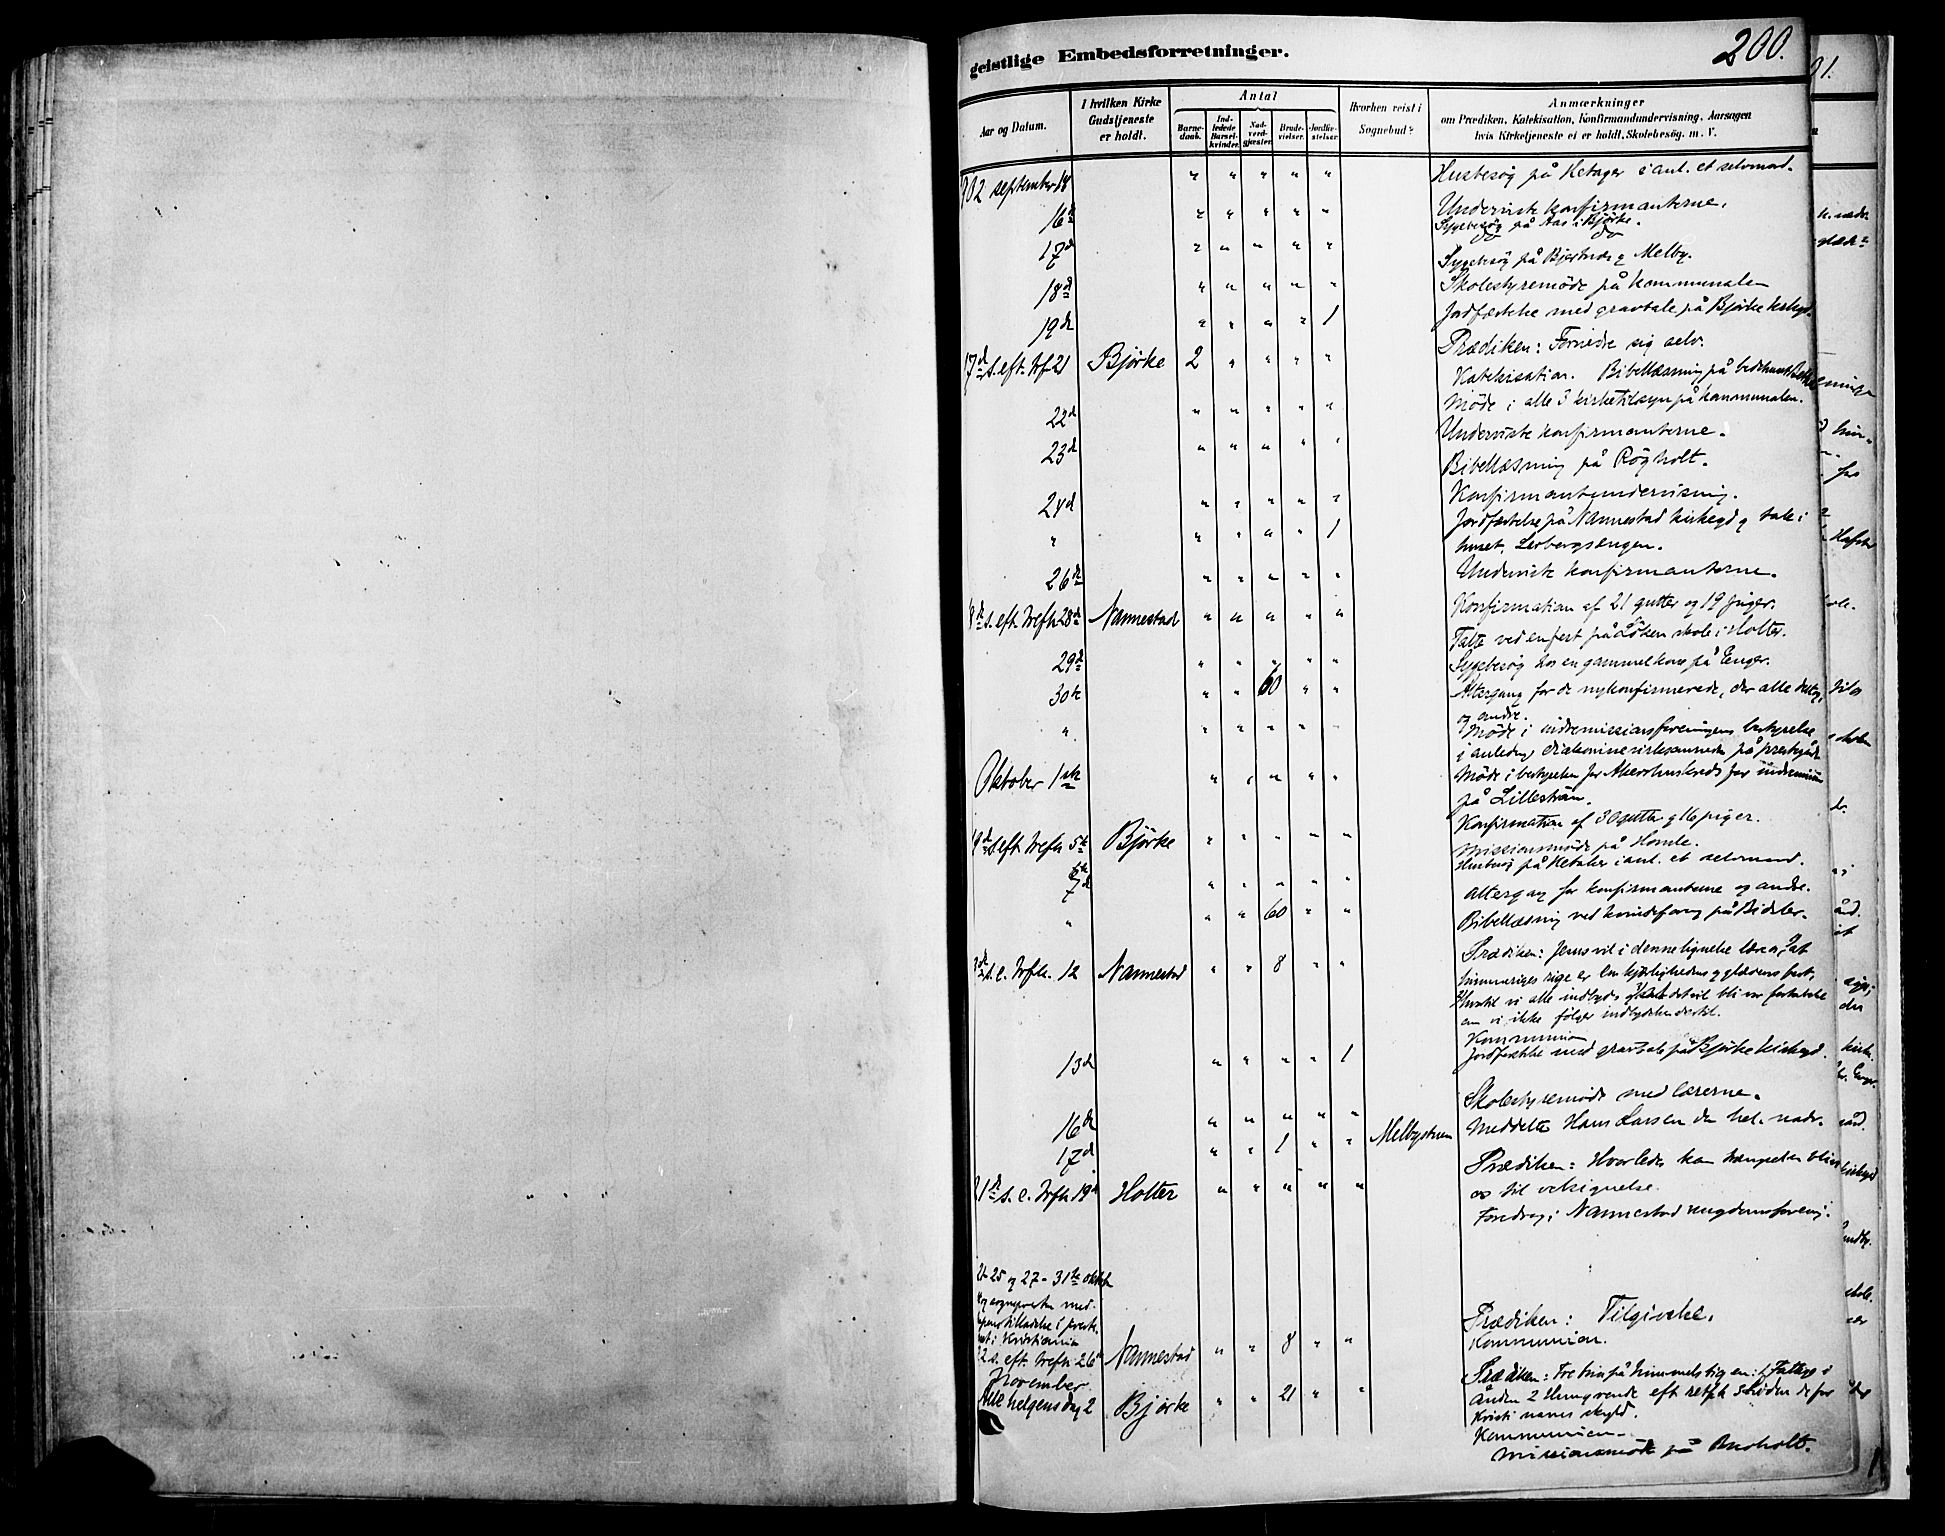 geistlige Embedsforretninger.
200.
Aar og Datum.
I hvilken Kirke Gudstjeneste er holdt.
Antal
Barnedaab.
Indledede Barselkvinder.
Nadverdgjæster.
Brudevielser.
Jordfæstelser
Hvorhen reist i Sognebud?
Anmærkninger
om Prædiken, Katekisation, Konfirmandundervisning, Aarsagen
hvis Kirketjeneste ei er holdt, Skolebesøg. m. V.
902 september 18 " " " " " Husbesøg på Ketager i anl. et selvmord.
16d " " " " " Underviste konfirmanterne.
Sygebesøg på Aas i Bjørke.
do do
17d " " " " " Sygebesøg på Bjertnæs og Melby.
18d " " " " " Skolestyremöde på kommunalen
19d " " " " 1 Jordfæstelse med gravtale på Bjørke kirkegd.
17d s. eft. trf. 21 Bjørke 2 " " " " Prædiken: Fornedre sig selv.
Katekisation. Bibellæsning på bedehuset
22d " " " " " Möde i alle 3 kirketilsyn på kommunalen.
23d " " " " " Underviste konfirmanterne.
Bibellæsning på Røgholt.
24d " " " " " Konfirmantundervisning.
" " " " " 1 Jordfæstelse på Nannestad kirkegd og tale i
huset, Lerbergsengen.
26d " " " " " Underviste konfirmanterne.
18d s. eft. trefh 28d Nannestad " " " " " Konfirmation af 21 gutter og 19 piger.
Talte ved en fest på Løken skole i Holter.
29d " " " " " Sygebesøg hos en gammel kone på Enger.
30te " " 60 " " Altergang for de nykonfirmerede, der alle deltog,
og andre.
" " " " " " Möde i indremissionsforeningens bestyrelse
i anledng diakonivirksomheden på prestegård
Oktober 1ste " " " " " Möde i bestyrelsen for Akershuskreds for indremission
på Lillestrøm.
19d s. eft. trefh 5te Bjørke " " " " " Konfirmation af 30 gutter og 16 piger.
Missionsmöde på Homle.
6te Husbesøg på Ketaler i anl. et selvmord.
7d " " " " "
" " " 60 " " Altergang for konfirmanterne og andre.
Bibellæsning ved kvindeforeng på Bideler.
s. e. trfh. 12 Nannestad " " 8 " " Prædiken: Jesus vil i denne lignelse lære os, 1 at
himmeriges rige er en kjærlighedens og glædens fest,
2 Hvortil vi alle indbydes og 3 at det vil bli vor fortabelse
om vi ikke følger indbydelsen dertil.
Kommunion
13d " " " " 1 Jordfæstelse med gravtale på Bjørke kirkegd.
16d " " " " " Skolestyremöde med lærerne.
17d " " 1 " " Melbystuen Meddelte Hans Larsen den hel. nadv.
21d s. e. trfh. 19d Holter " " " " " Prædiken: Hvorledes kan trængselen blive
os til velsignelse.
Foredrag i Nannestad ungdomsforening.
21-25 og 27-31te oktbr
sognepresten med
tilladelse i
i Kristiania
22 s. eft. trefh 26d Nannestad " " 8 " " Prædiken: Tilgivelse.
Kommunion.
November
Alle helgens dag 2 Bjørke " " 21 " " Prædiken: Tre trin på himmelstigen: 1 Fattige i
Ånden 2 Hungrende eft retf. 3 Liden de for
Kristi navns skyld.
Kommunion.
Missionsmöde på Buoholt.